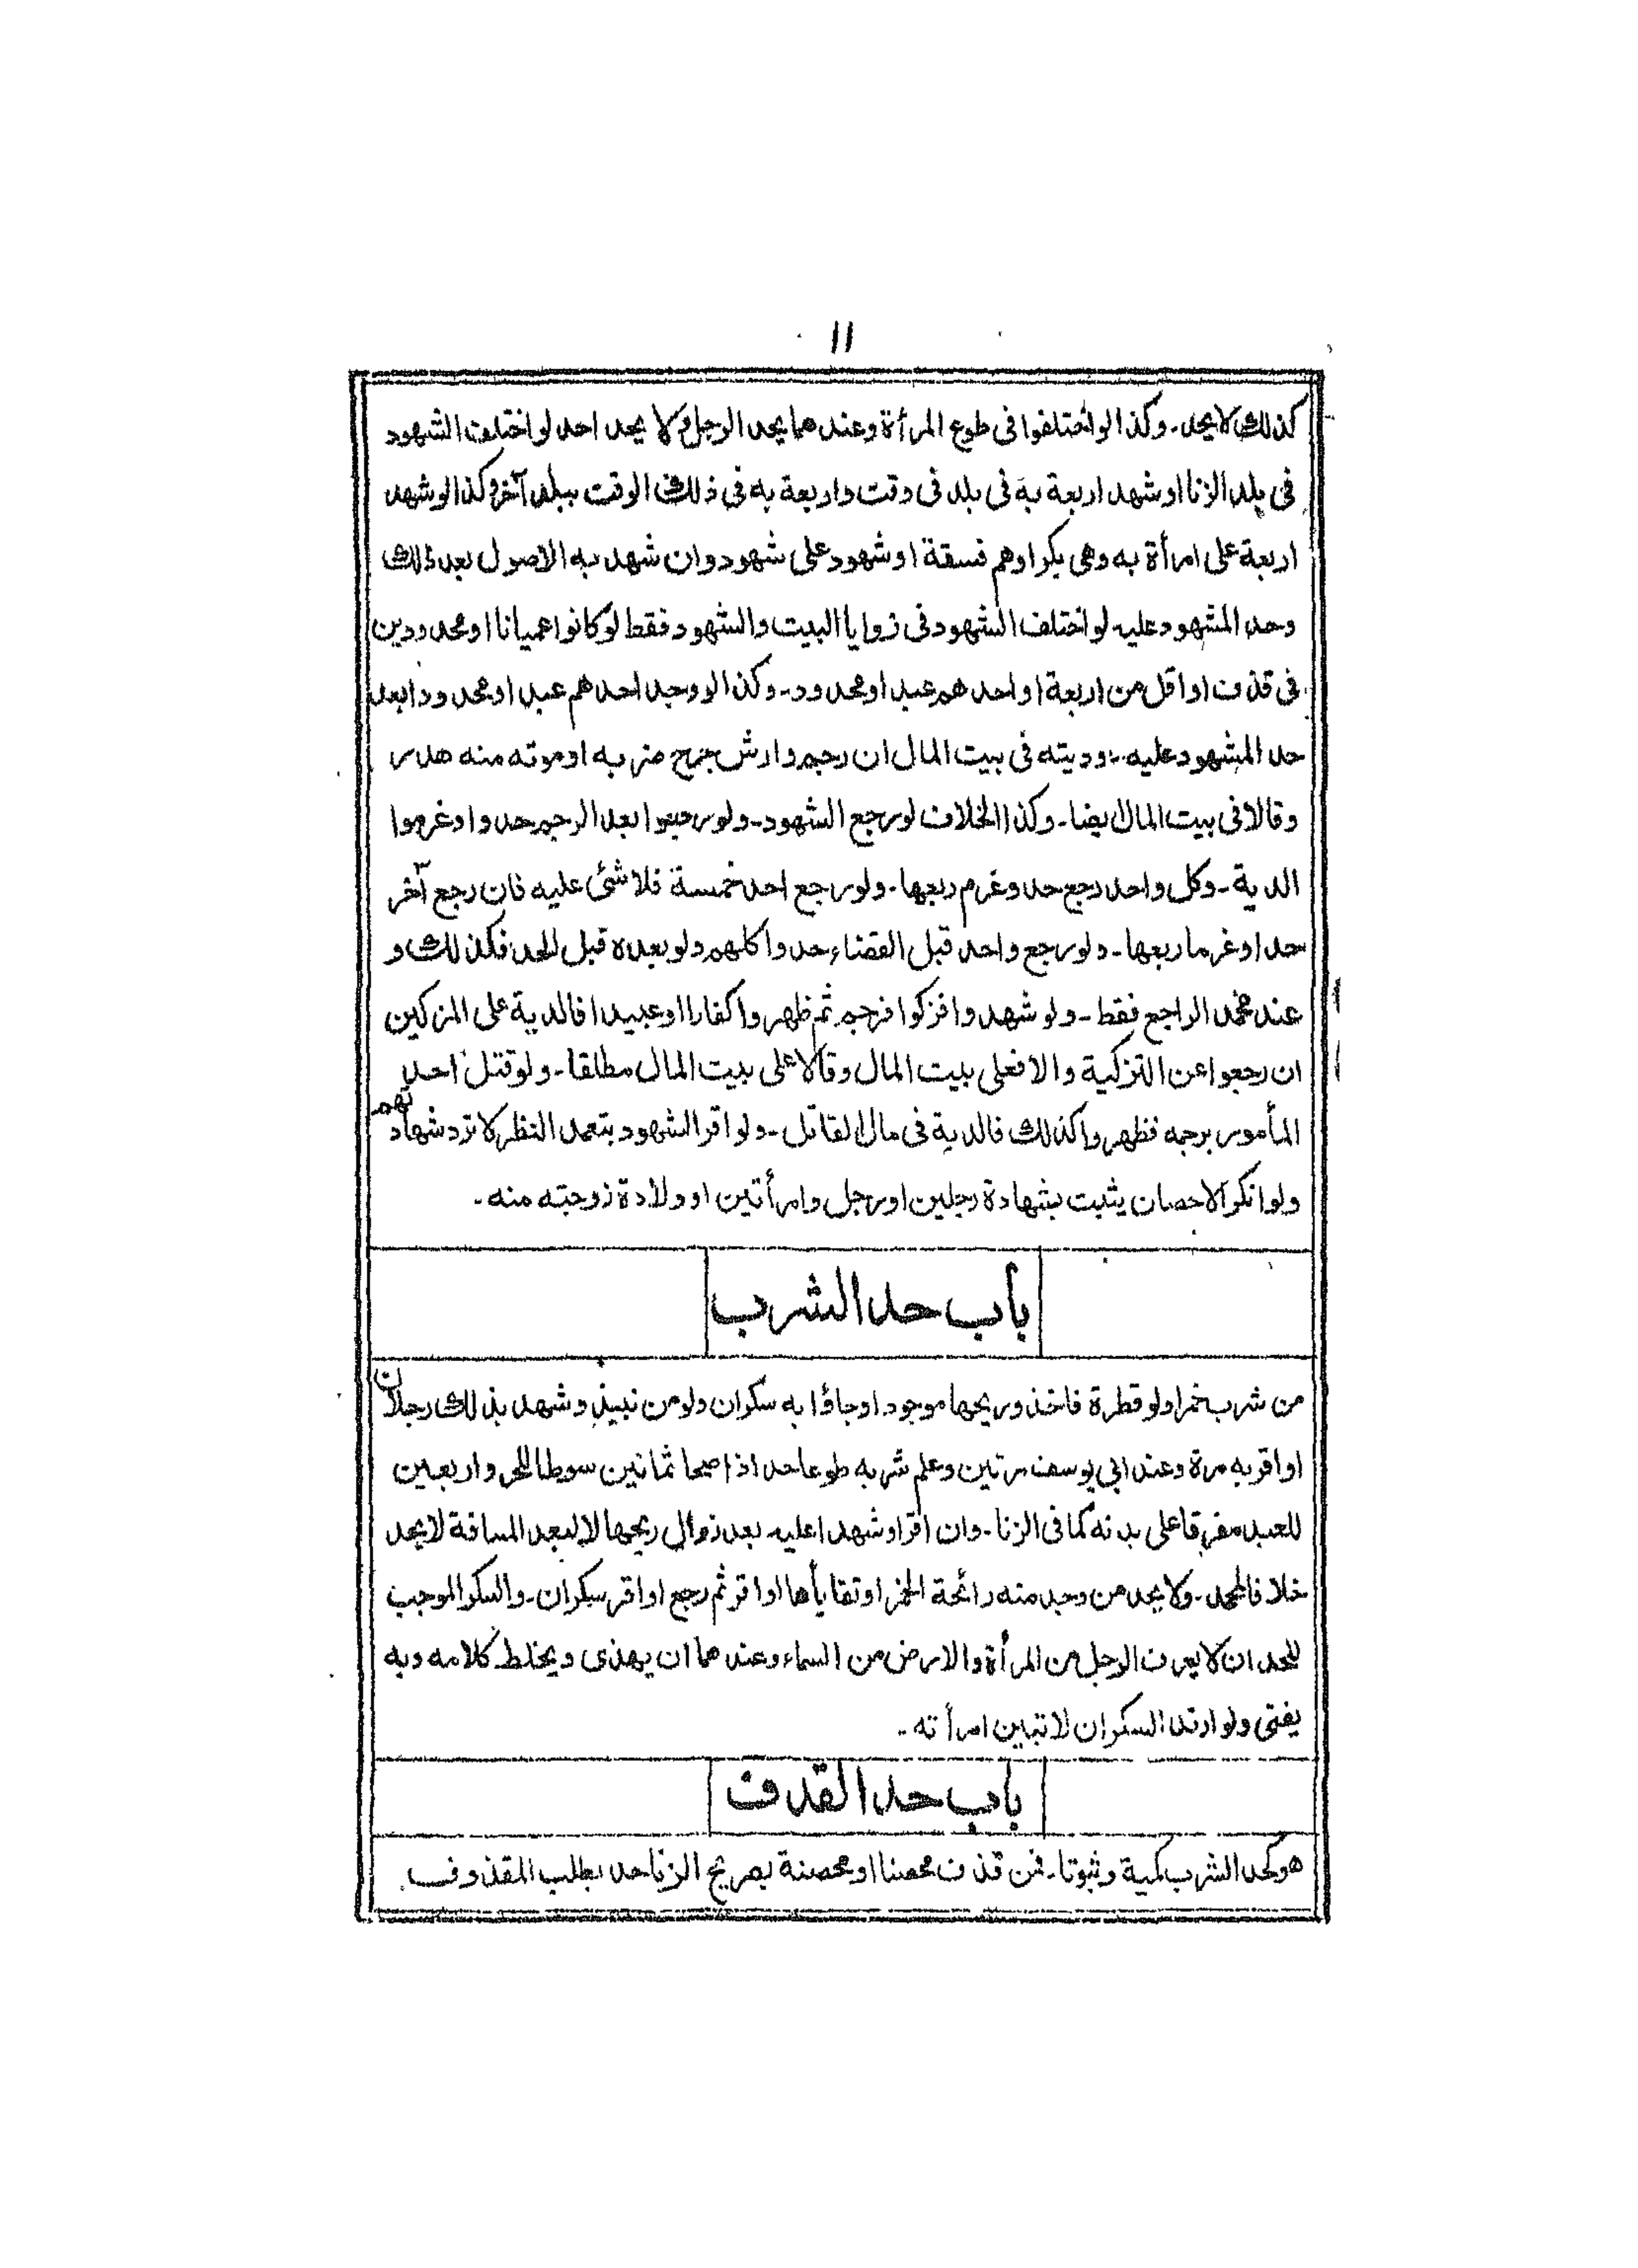 ۱۱
كذلك لا يحد ـ وكذا لو اختلفوا فى طوع المرأة وعندهما يحد الرجل ولا يحد احد لو اختلف الشهود
فى بلد الزنا او شهد اربعة به فى بلد فى وقت واربعة به فى ذلك الوقت ببلد آخر وكذا لو شهد
اربعة على امرأة به وهى بكر اوهم فسقة او شهود على شهود وان شهد به الاصول بعد ذلك
وحد المشهود عليه لو اختلف الشهود فى زوايا البيت والشهود فقط لو كانوا عميانا او محدودين
فى قذف او اقل من اربعة او احدهم عبد او محدود ـ وكذا لو وجد احدهم عبد او محدودا بعد
حد المشهود عليه ـ وديته فى بيت المال ان رجم وارش جرح ضربه او موته منه هدر
وقالا فى بيت المال ايضا ـ وكذا الخلاف لو رجع الشهود ـ ولو رجعوا بعد الرجم حدوا وغرموا
الدية ـ وكل واحد رجع حد وغرم ربعها ـ ولو رجع احد خمسة فلا شئ عليه فان رجع آخر
حدا وغرما ربعها ـ ولو رجع واحد قبل القضاء حدوا كلهم ولو بعده قبل الحد فكذلك و
عند محمد الراجع فقط ـ ولو شهدوا فزكوا فرجم ثم ظهروا كفارا او عبيدا فالدية على المزكين
ان رجعوا عن التزكية والا فعلى بيت المال وقالا على بيت المال مطلقا ـ ولو قتل احد
المأمور برجمه فظهروا كذلك فالدية فى مال القاتل ـ ولو اقر الشهود بتعمد النظر لا ترد شهادتهم
ولو انكر الاحصان يثبت بشهادة رجلين او رجل وامرأتين او ولادة زوجته منه ـ
باب حد الشرب
من شرب خمرا ولو قطرة فاخذ وريحها موجود او جاؤا به سكران ولو من نبيذ وشهد بذلك رجلان
او اقر به مرة وعند ابى يوسف مرتين وعلم شربه طوعا حد اذا صحا ثمانين سوطا للحر واربعين
للعبد مفرقا على بدنه كما فى الزنا ـ وان اقر او شهدا عليه بعد زوال ريحها لا لبعد المسافة لا يحد
خلافا لمحمد ـ ولا يحد من وجد منه رائحة الخمر او تقايأها او اقر ثم رجع او اقر سكران ـ والسكر الموجب
للحد ان لا يعرف الرجل من المرأة والارض من السماء وعندهما ان يهذى ويخلط كلامه وبه
يفتى ولو ارتد السكران لا تبين امرأته ـ
باب حد القذف
هو كحد الشرب كمية وثبوتا ـ فمن قذف محصنا او محصنة بصريح الزنا حد بطلب المقذوف